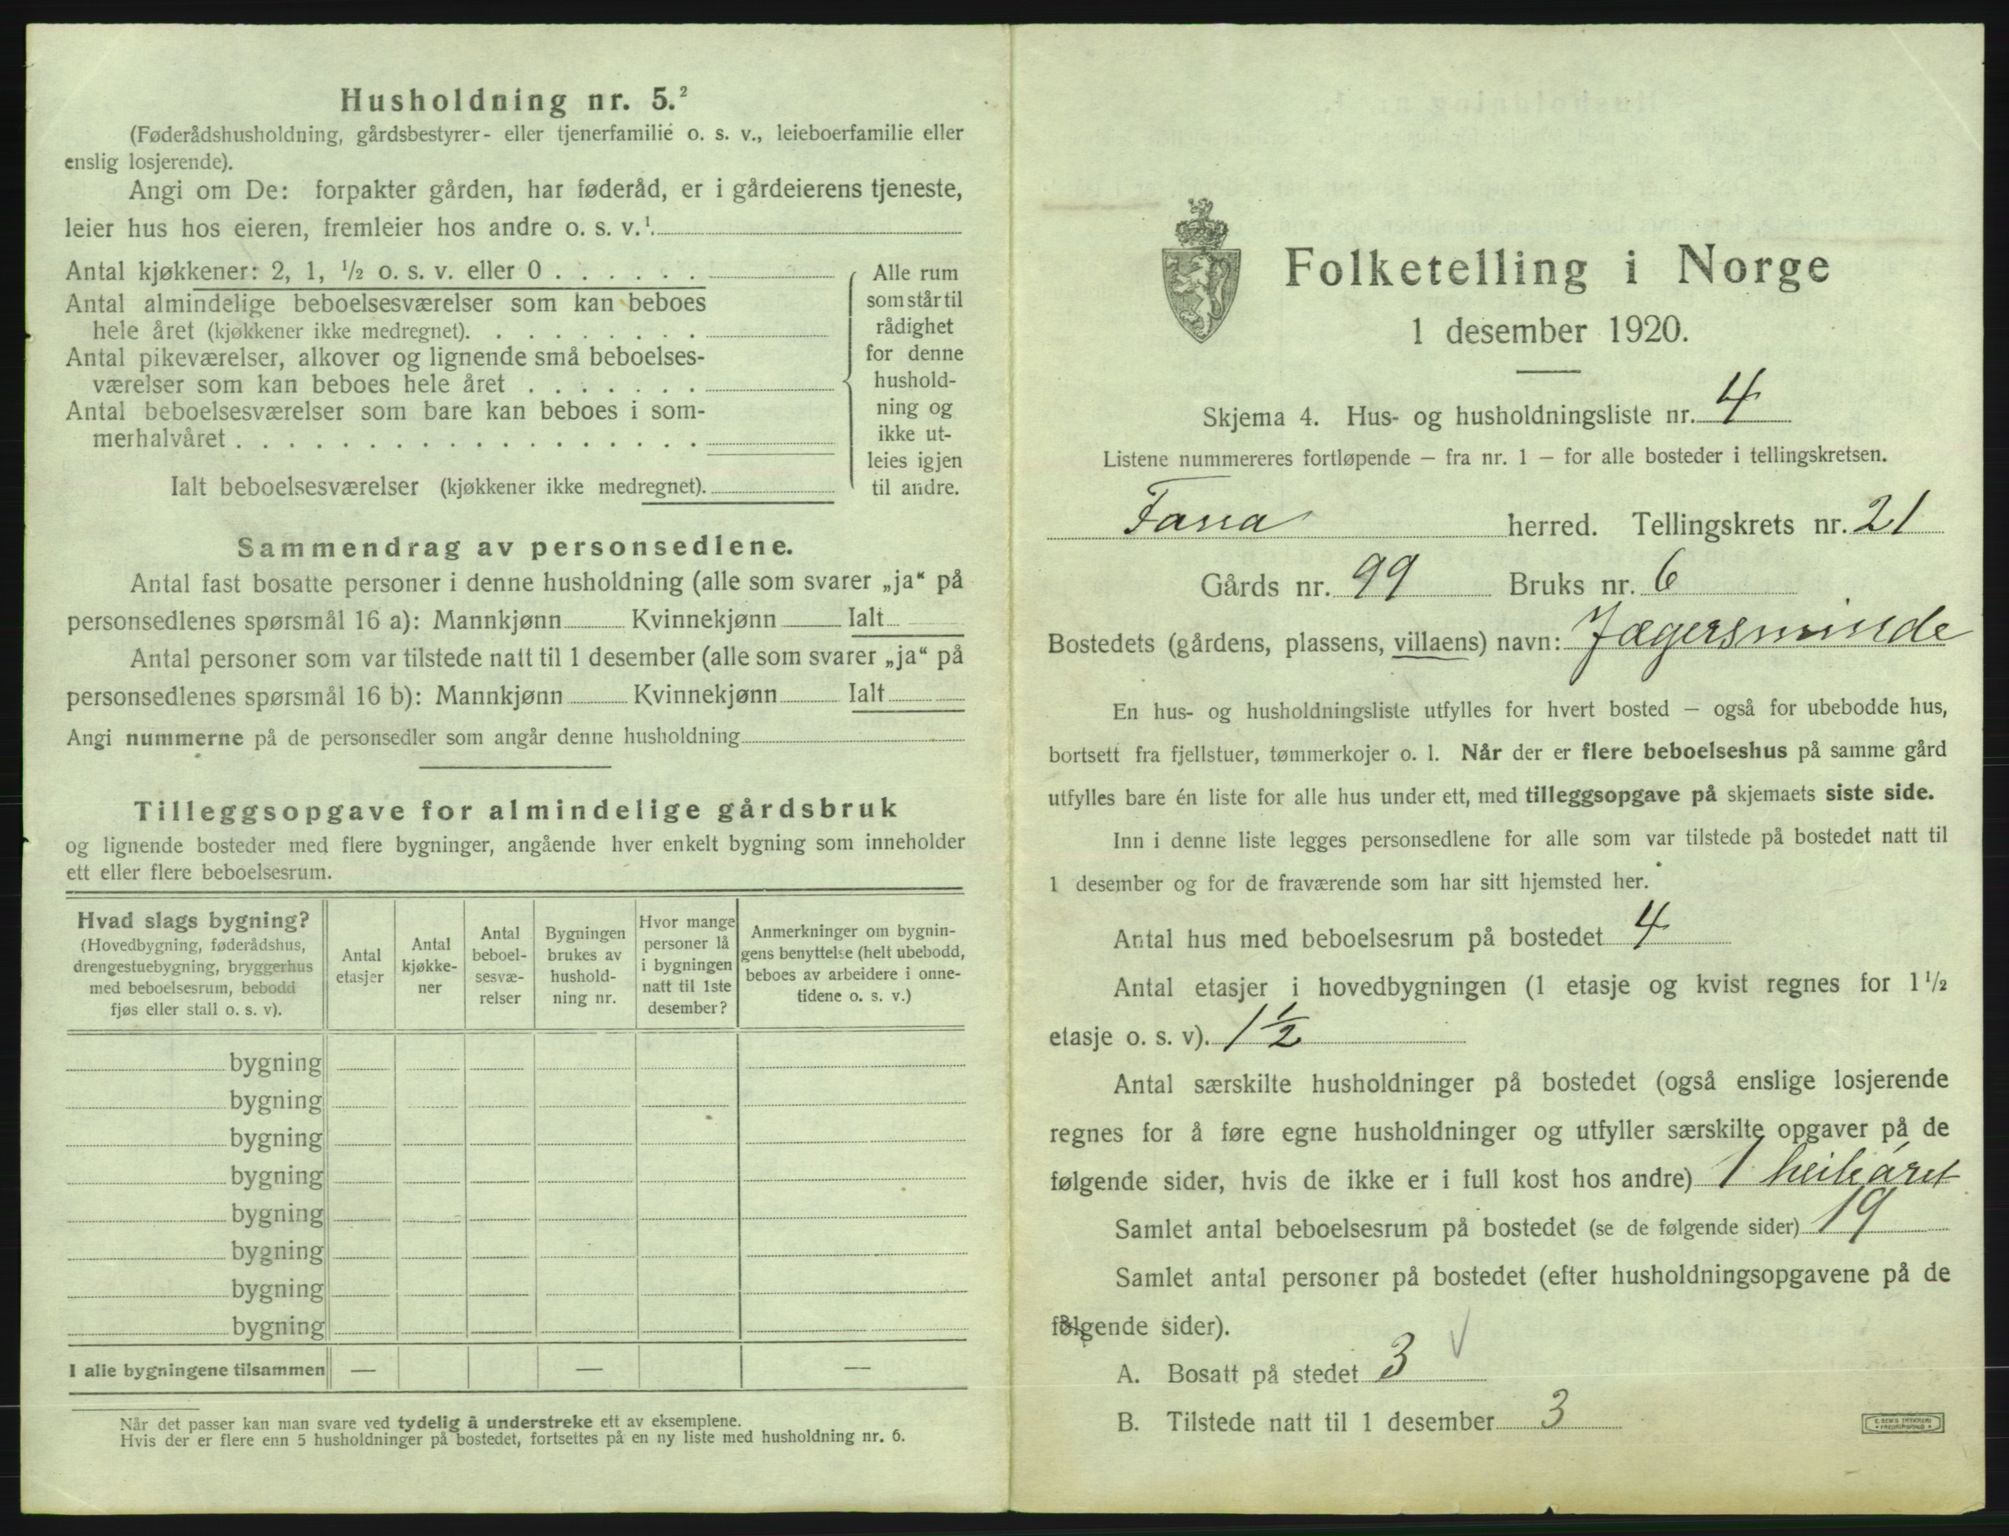 Husholdning nr. 5.²
(Føderådshusholdning, gårdsbestyrer- eller tjenerfamilie o. s. v., leieboerfamilie eller
enslig losjerende).
Angi om De: forpakter gården, har føderåd, er i gårdeierens tjeneste,
leier hus hos eieren, fremleier hos andre o. s. v.¹
Antal kjøkkener: 2, 1, ½ o. s. v. eller 0 . . . . . .
Antal almindelige beboelsesværelser som kan beboes
hele året (kjøkkener ikke medregnet). . . . . . . . .
Antal pikeværelser, alkover og lignende små beboelses-
værelser som kan beboes hele året . . . . . . .
Antal beboelsesværelser som bare kan beboes i som-
merhalvåret . . . . . . . . . . . . . . . . . .
Ialt beboelsesværelser (kjøkkener ikke medregnet).
Alle rum
som står til
rådighet
for denne
hushold-
ning og
ikke ut-
leies igjen
til andre.
Sammendrag av personsedlene.
Antal fast bosatte personer i denne husholdning (alle som svarer „ja“ på
personsedlenes spørsmål 16 a): Mannkjønn Kvinnekjønn Ialt
Antal personer som var tilstede natt til 1 desember (alle som svarer „ja“ på
personsedlenes spørsmål 16 b): Mannkjønn Kvinnekjønn Ialt
Angi nummerne på de personsedler som angår denne husholdning
Tilleggsopgave for almindelige gårdsbruk
og lignende bosteder med flere bygninger, angående hver enkelt bygning som inneholder
ett eller flere beboelsesrum.
Hvad slags bygning?
(Hovedbygning, føderådshus,
drengestuebygning, bryggerhus
med beboelsesrum, bebodd
fjøs eller stall o. s. v).
Antal
etasjer
Antal
kjøkke-
ner
Antal
beboel-
sesvæ-
relser
Bygningen
brukes av
hushold-
ning nr.
Hvor mange
personer lå
i bygningen
natt til 1ste
desember?
Anmerkninger om bygnin-
gens benyttelse (helt ubebodd,
beboes av arbeidere i onne-
tidene o. s. v.)
bygning
bygning
bygning
bygning
bygning
bygning
bygning
bygning
I alle bygningene tilsammen — — —
Når det passer kan man svare ved tydelig å understreke ett av eksemplene.
Hvis der er flere enn 5 husholdninger på bostedet, fortsettes på en ny liste med husholdning nr. 6.
Folketelling i Norge
1 desember 1920.
Skjema 4. Hus- og husholdningsliste nr. 4
Listene nummereres fortløpende – fra nr. 1 – for alle bosteder i tellingskretsen.
Fana herred. Tellingskrets nr. 21
Gårds nr. 99 Bruks nr. 6
Bostedets (gårdens, plassens, villaens) navn: Jægersminde
En hus- og husholdningsliste utfylles for hvert bosted – også for ubebodde hus,
bortsett fra fjellstuer, tømmerkojer o. l. Når der er flere beboelseshus på samme gård
utfylles bare én liste for alle hus under ett, med tilleggsopgave på skjemaets siste side.
Inn i denne liste legges personsedlene for alle som var tilstede på bostedet natt til
1 desember og for de fraværende som har sitt hjemsted her.
Antal hus med beboelsesrum på bostedet 4
Antal etasjer i hovedbygningen (1 etasje og kvist regnes for 1½
etasje o. s. v). 1½
Antal særskilte husholdninger på bostedet (også enslige losjerende
regnes for å føre egne husholdninger og utfyller særskilte opgaver på de
følgende sider, hvis de ikke er i full kost hos andre) 1 heilåret
Samlet antal beboelsesrum på bostedet (se de følgende sider) 19
Samlet antal personer på bostedet (efter husholdningsopgavene på de
følgende sider).
A. Bosatt på stedet 3
B. Tilstede natt til 1 desember 3